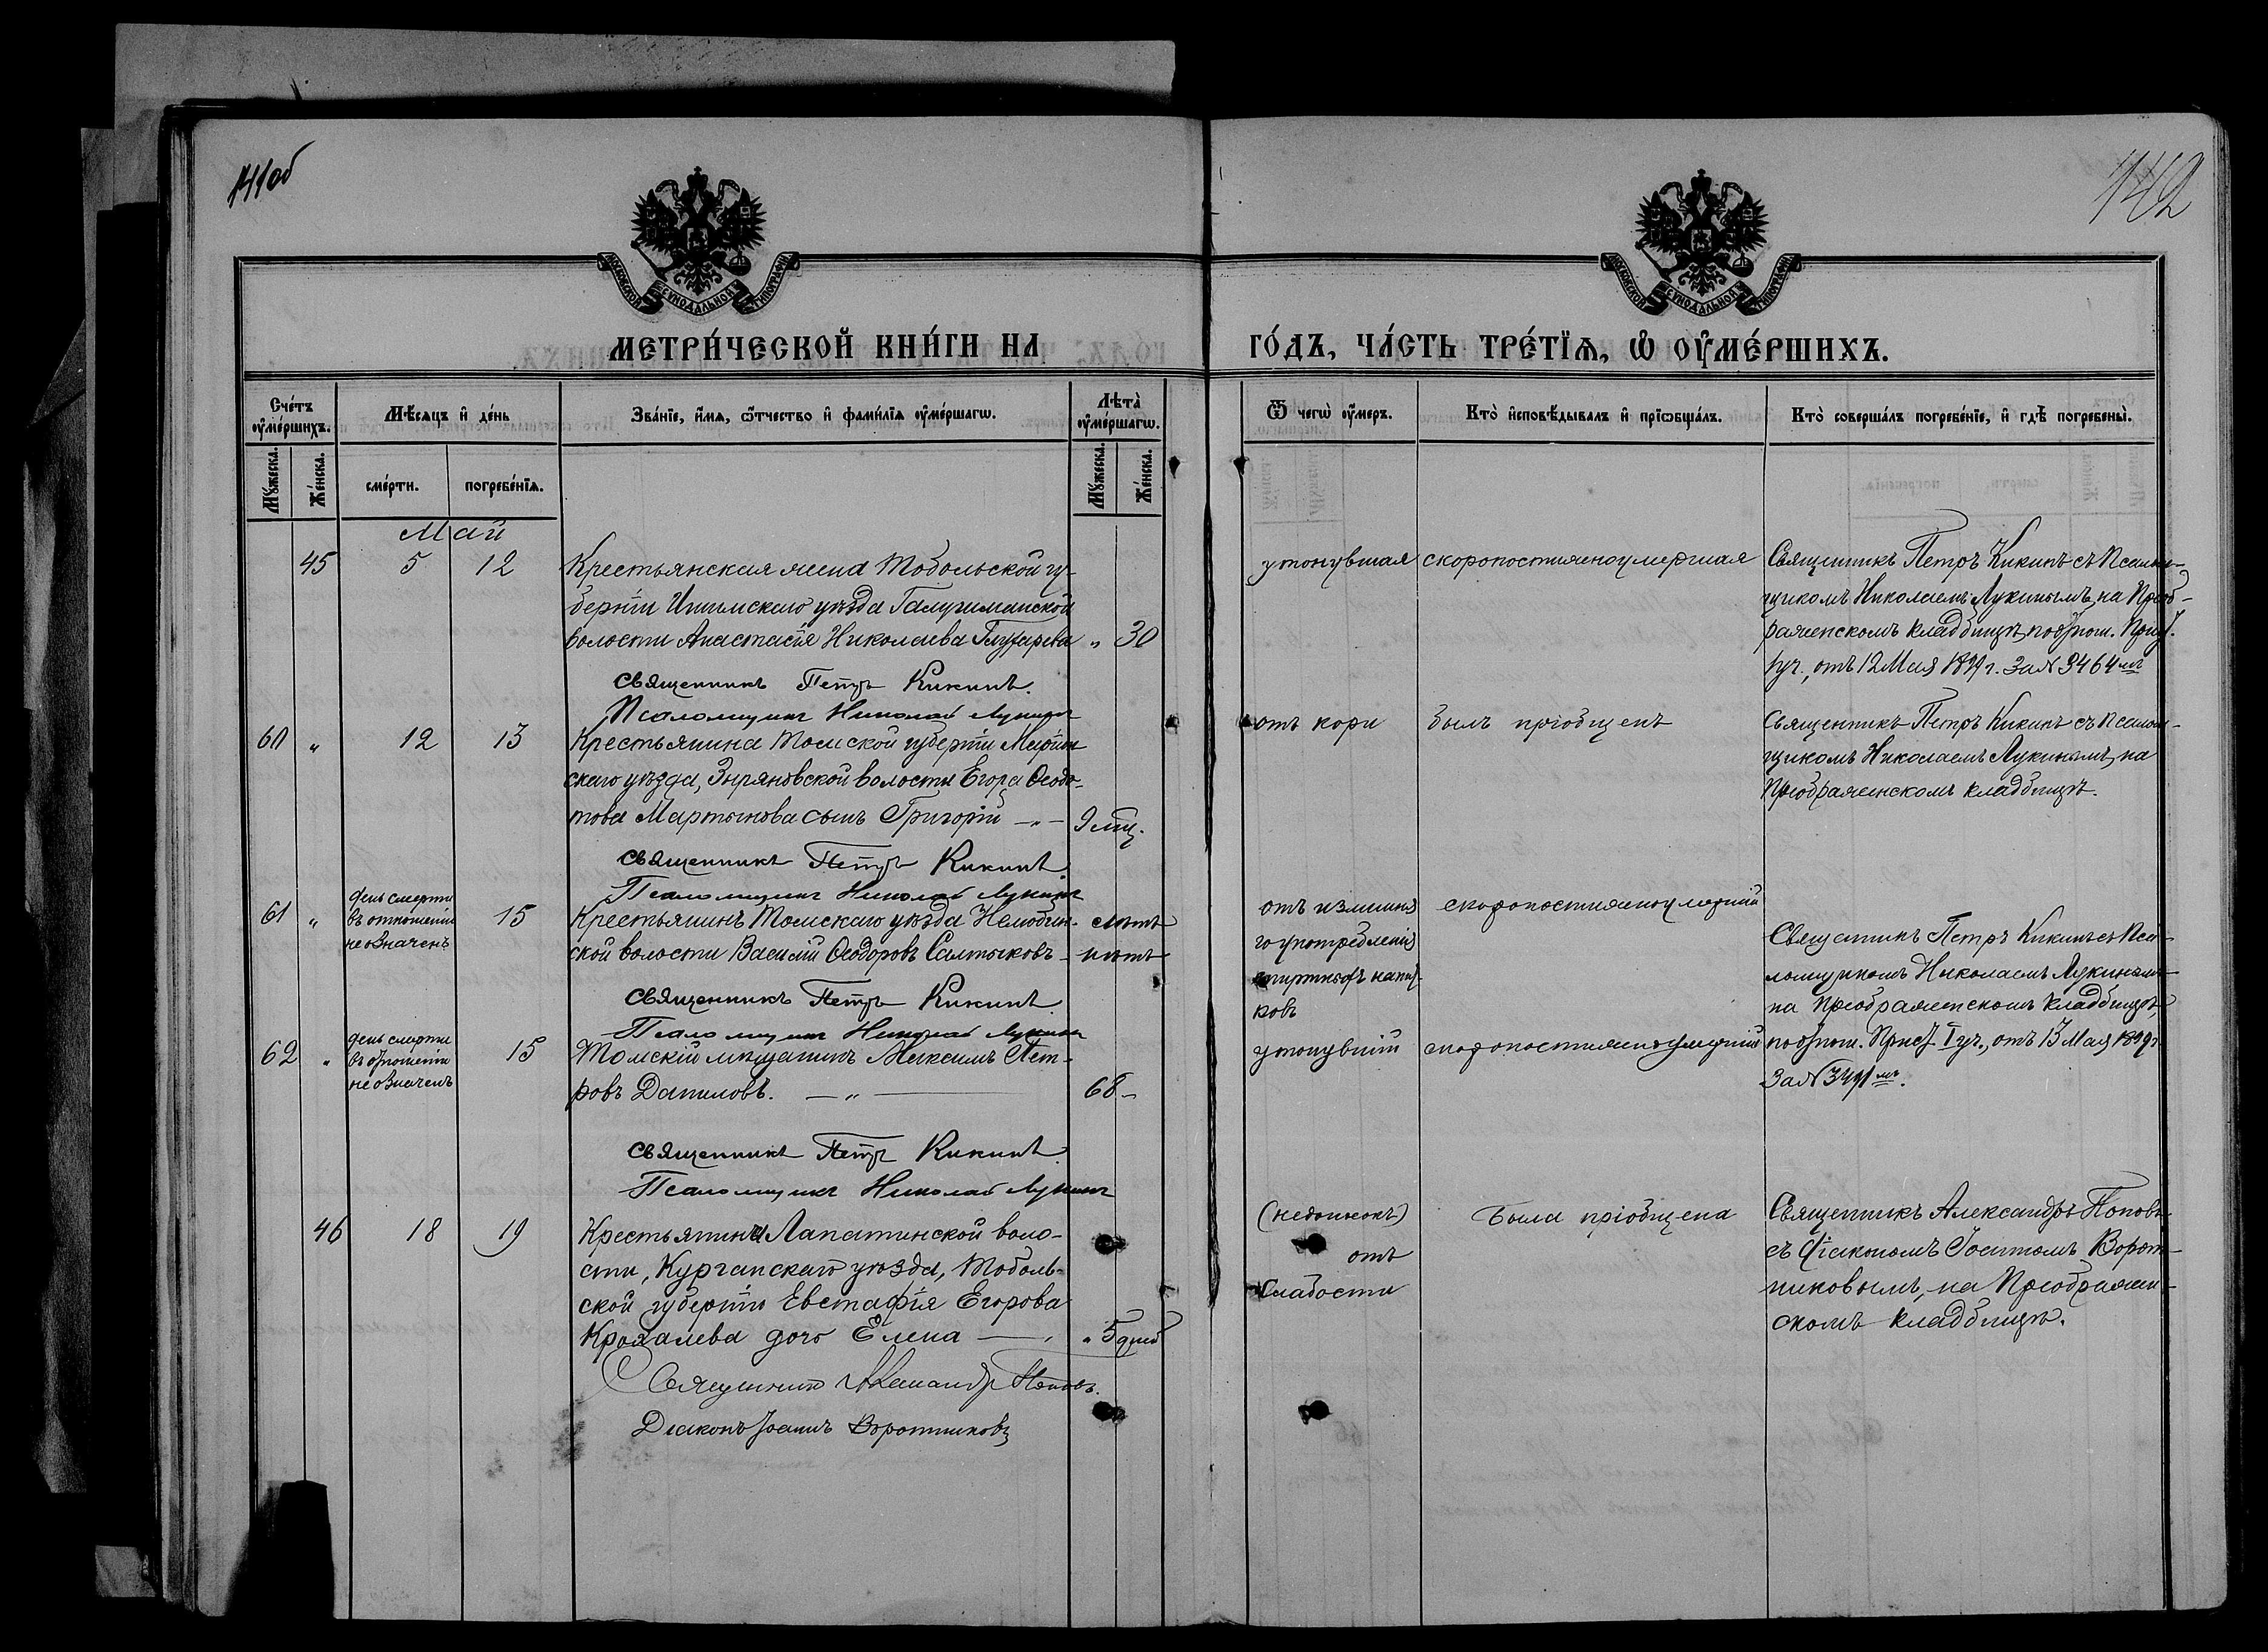 141об
142
МОСКОВСКОЙ СѴНОДАЛЬНОЙ ТИПОГРАФІИ
МОСКОВСКОЙ СѴНОДАЛЬНОЙ ТИПОГРАФІИ
МЕТРИ́ЧЕСКОЙ КНИ́ГИ НА
ГО́ДЪ, ЧА́СТЬ ТРЕ́ТЇѦ, Ѡ ОУ҆МЕ́РШИХЪ.
Сче́тъ оу҆ме́ршихъ.
Мѣ́сяцъ и҆ де́нь
Зва́нїе, и҆́мя, ѻ҆́тчество и҆ фами́лїя оу҆ме́ршагѡ.
Лѣта̀ оу҆ме́ршагѡ.
Ѿ чегѡ̀ оу҆́меръ.
Кто̀ и҆сповѣ́дывалъ и҆ прїѡбща́лъ.
Кто̀ соверша́лъ погребе́нїе, и҆ гдѣ̀ погребены̀.
Мꙋ́жеска.
Же́нска.
сме́рти.
погребе́нїя.
Мꙋ́жеска.
Же́нска.
Май
45 5 12 Крестьянская жена Тобольской гу-
берніи Ишимскаго уѣзда
волости Анастасія Николаева Глухарева " 30
Священникъ Петръ Кикинъ.
Псаломщикъ Николай Лукинъ
утонувшая
скоропостижноумершая
Священникъ Петръ Кикинъ съ Псалом-
щикомъ Николаемъ Лукинымъ, на Преоб-
раженскомъ кладбищѣ, по отнош. Прист.
уч., отъ 12 Мая 1899 г. за № 3464 мъ
60 " 12 13 Крестьянина Томской губерніи Маріин-
скаго уѣзда, Зыряновской волости Егора Ѳеодо-
това Мартынова сынъ Григорій — " — 9 мц.
Священникъ Петръ Кикинъ
Псаломщикъ Николай Лукинъ
отъ кори
былъ пріобщенъ
Священникъ Петръ Кикинъ съ Псалом-
щикомъ Николаемъ Лукинымъ, на
Преображенскомъ кладбищѣ.
61 " день смерти
въ отношеніи
не означенъ
15 Крестьянинъ Томскаго уѣзда Нелюбин-
ской волости Василій Ѳеодоровъ Салтыковъ —
лѣтъ
нѣтъ
Священникъ Петръ Кикинъ
Псаломщикъ Николай Лукинъ
отъ излишня
го употребленія
спиртныхъ напит
ковъ
скоропостижноумершій
Священникъ Петръ Кикинъ съ Пса-
ломщикомъ Николаемъ Лукинымъ
на Преображенскомъ кладбищѣ,
по отнош. Прист. I уч., отъ 13 Мая 1899 г.
За № 3491 мъ.
62 " день смерти
въ отношеніи
не означенъ
15 Томскій мѣщанинъ Максимъ Пет-
ровъ Даниловъ. — " — 68 –
Священникъ Петръ Кикинъ
Псаломщикъ Николай Лукинъ
утонувшій
скоропостижноумершій
46 18 19 Крестьянина Лапатинской воло-
сти, Курганскаго уѣзда, Тоболь-
ской губерніи Евстафія Егорова
Крохалева дочь Елена — " 5 дней
Священникъ Александръ Поповъ.
Діаконъ Іоаннъ Воротниковъ
(недоносокъ)
отъ
слабости
Была пріобщена
Священникъ Александръ Поповъ
съ Діакономъ Іоанномъ Ворот-
никовымъ, на Преображен-
скомъ кладбищѣ.